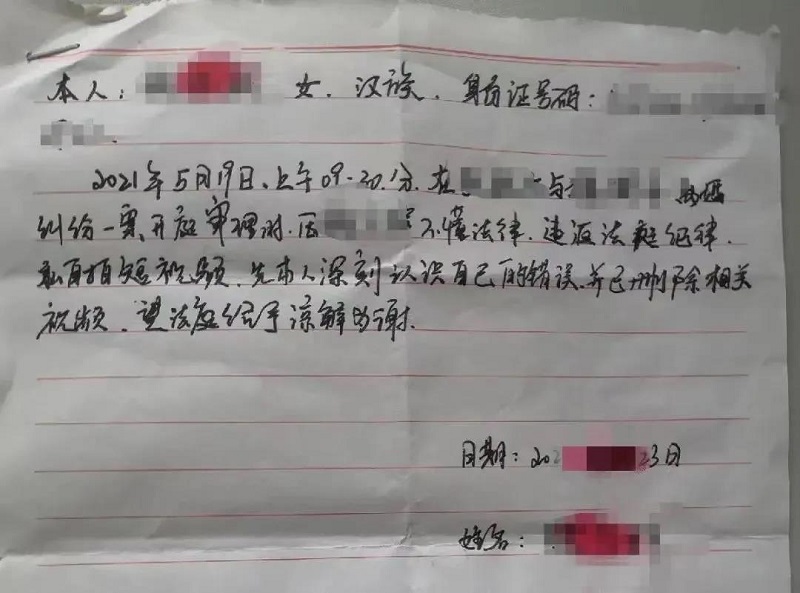 本人： 女，汉族，身份证号码：
2021年5月19日，上午09:20分，在 与
纠纷一案开庭审理时，因 不懂法律，违返法庭纪律，
私自拍短视频，先本人深刻认识自己的错误，并已删除相关
视频，望法庭给予谅解为谢.
日期：202 23日
姓名：